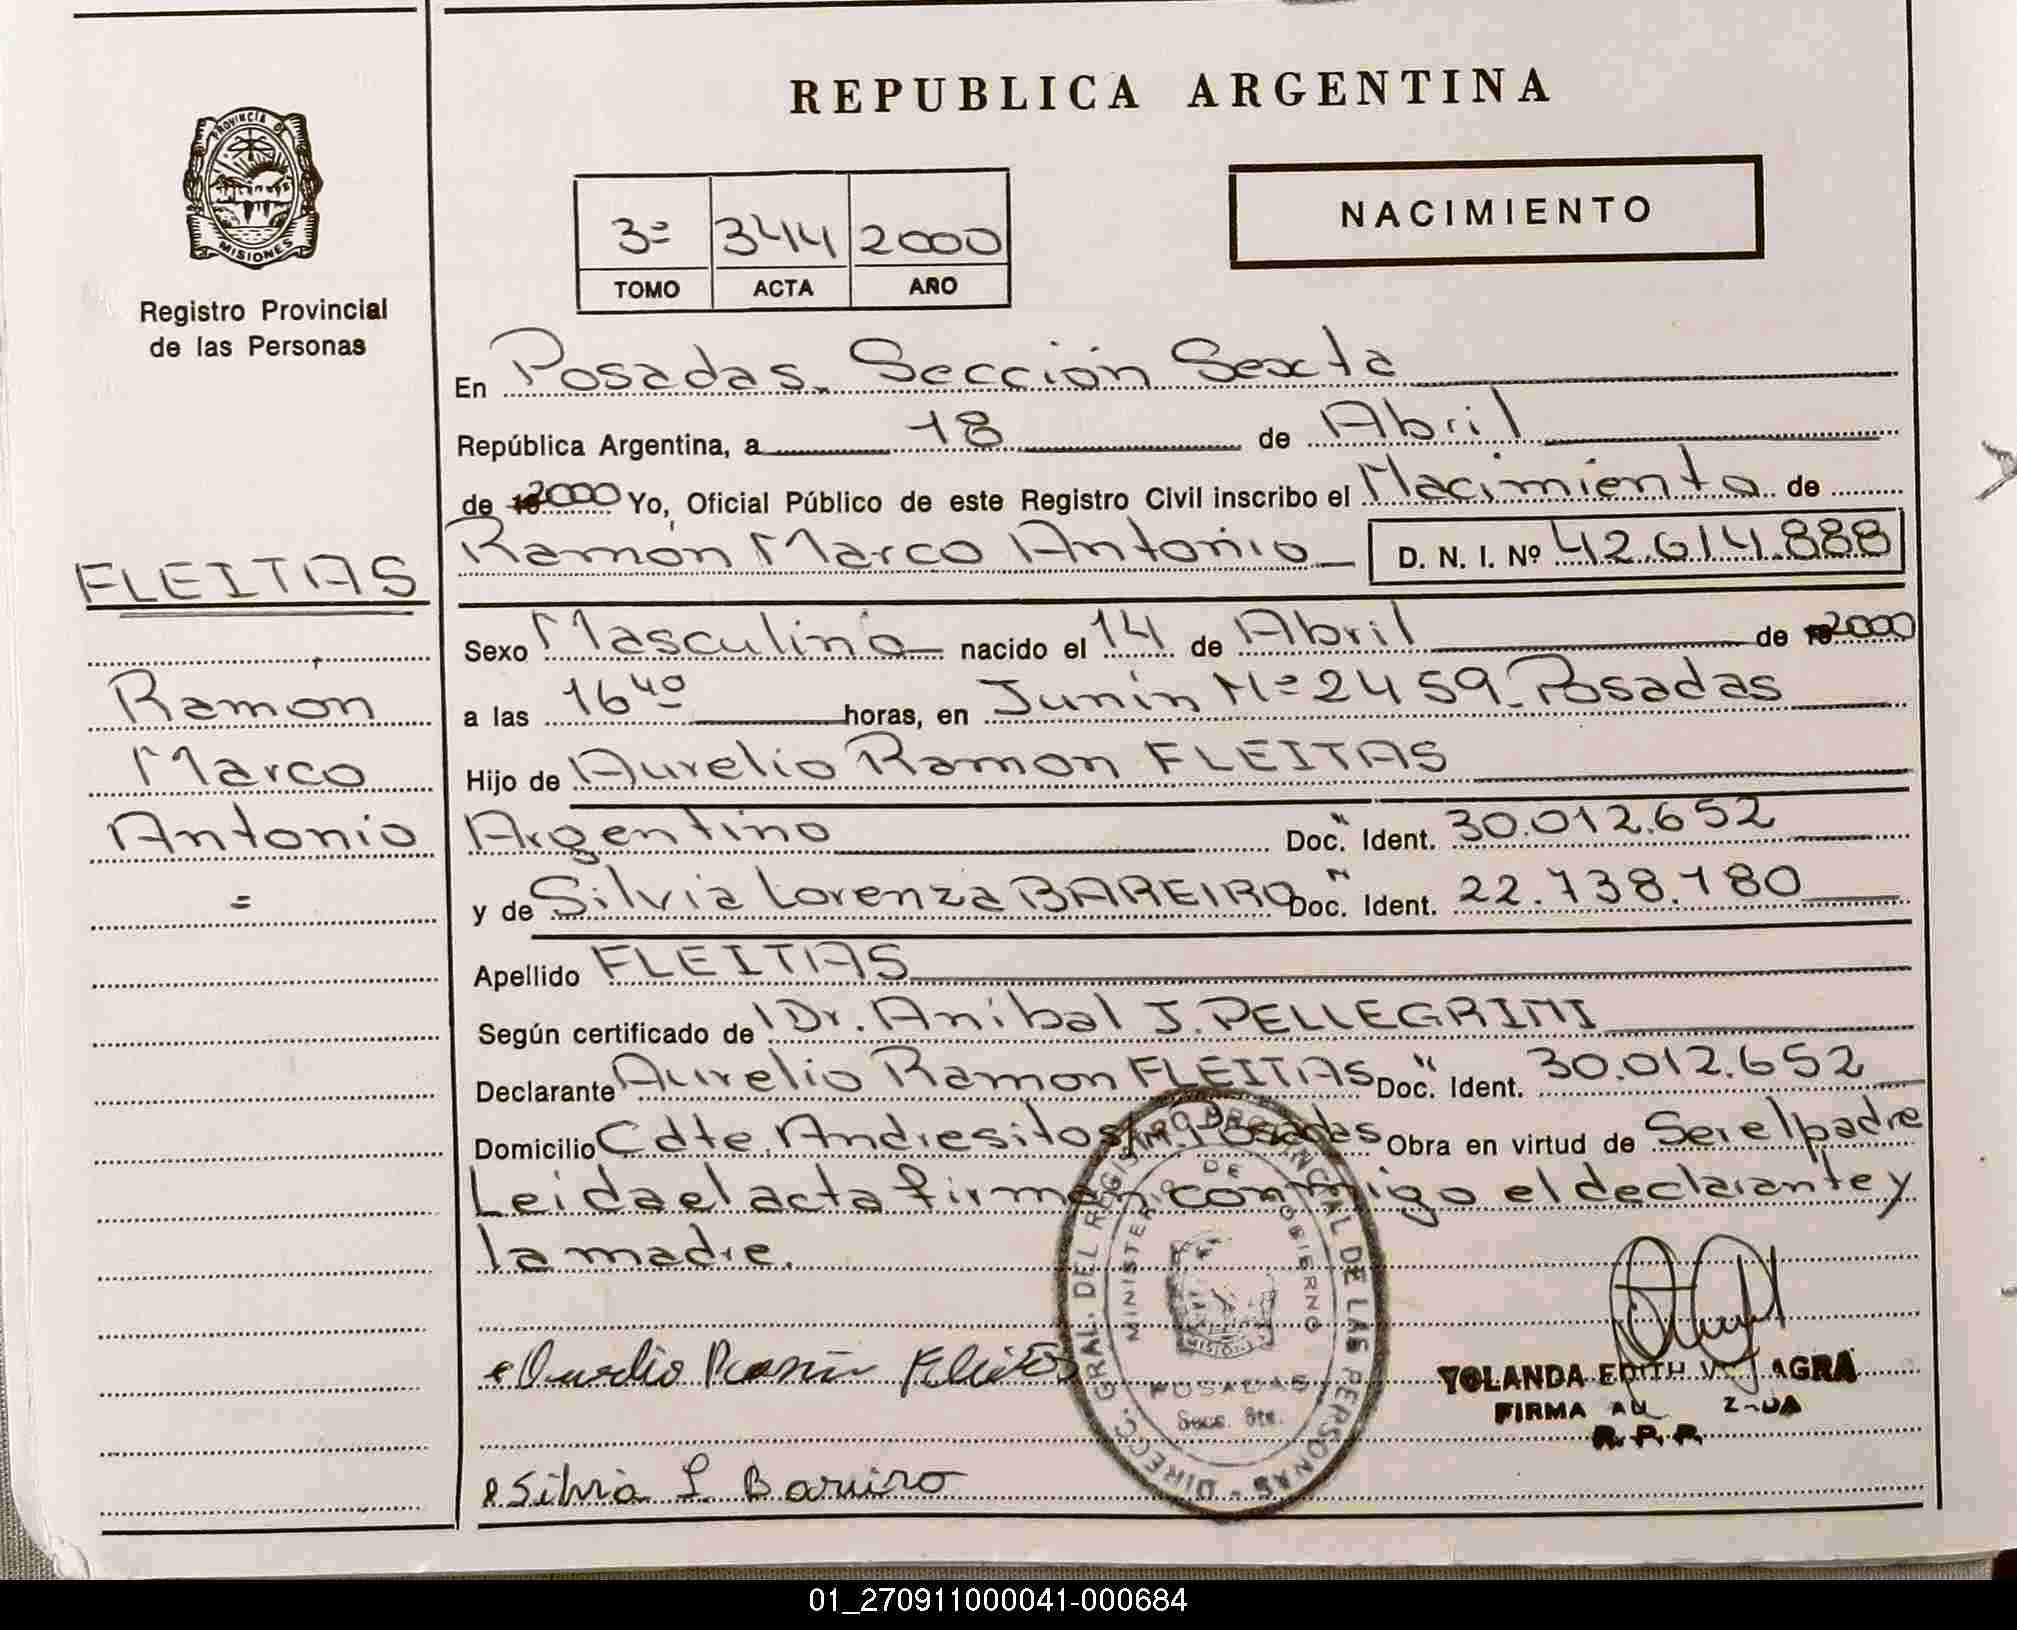 REPUBLICA ARGENTINA
PROVINCIA DE
MISIONES
Registro Provincial
de las Personas
3º 344 2000
TOMO ACTA AÑO
NACIMIENTO
En Posadas. Sección Sexta
República Argentina, a 18 de Abril
de 2000 Yo, Oficial Público de este Registro Civil inscribo el Nacimiento de
Ramón Marco Antonio D. N. I. Nº 42.614.888
FLEITAS
Ramón
Marco
Antonio
=
Sexo Masculino nacido el 14 de Abril de 2000
a las 16 40 horas, en Junín Nº 2459 - Posadas
Hijo de Aurelio Ramon FLEITAS
Argentino Doc. Ident. 30.012.652
y de Silvia Lorenza BAREIRO Doc. Ident. 22.738.180
Apellido FLEITAS
Según certificado de Dr. Anibal J. PELLEGRINI
Declarante Aurelio Ramon FLEITAS Doc. Ident. 30.012.652
Domicilio Cdte. Andresito s/n. Posadas Obra en virtud de Ser el padre
Leida el acta firman conmigo el declarante y
la madre.
DIRECC. GRAL. DEL REGISTRO PROVINCIAL DE LAS PERSONAS
MINISTERIO DE GOBIERNO
MISIONES
POSADAS
Secc. 6ta.
Aurelio Ramón Fleitas
YOLANDA EDITH
FIRMA
R. P. P.
Silvia L Bareiro
01_270911000041-000684